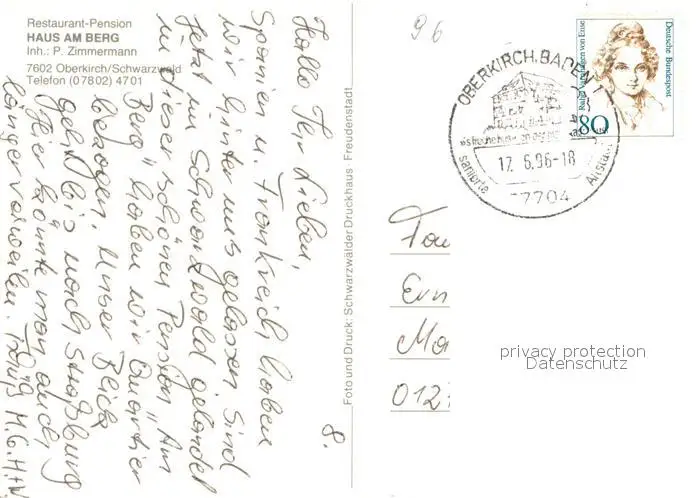 Restaurant-Pension
HAUS AM BERG
Inh.: P. Zimmermann
7602 Oberkirch/Schwarzwald
Telefon (07802) 4701
Hallo Ihr Lieben,
Spanien u. Frankreich haben
wir hinter uns gelassen. Sind
jetzt im Schwarzwald gelandet
in dieser schönen Pension „Am
Berg" haben wir Quartier
bezogen. Unser Blick
geht bis nach Straßburg
Hier könnte man auch
länger verweilen. M.G.H.+W.
8.
Foto und Druck: Schwarzwälder Druckhaus · Freudenstadt
96
OBERKIRCH, BADEN 1
17.6.96-18
sanierte Altstadt
7704
Deutsche Bundespost
Rahel Varnhagen von Ense
80
Fau
Ern
Ma
012
privacy protection
Datenschutz